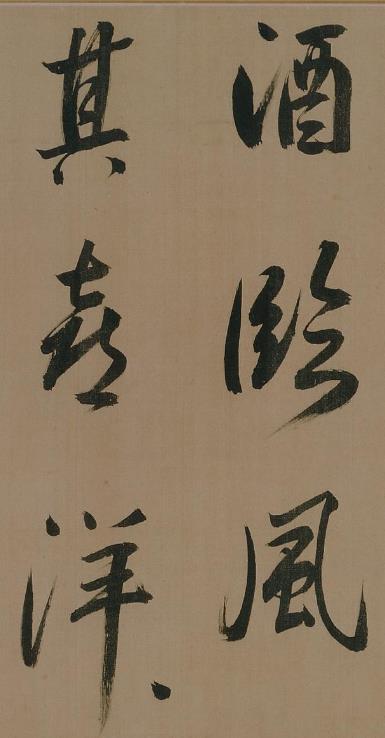 酒臨風
其喜洋〻